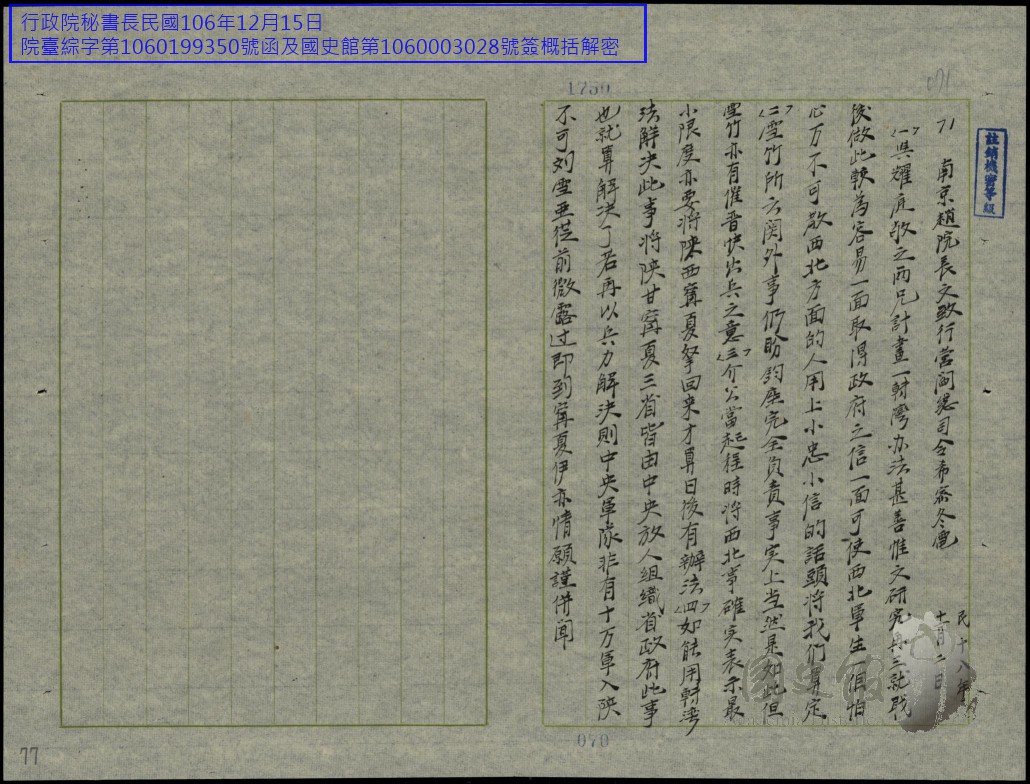 行政院秘書長民國106年12月15日
院臺綜字第1060199350號函及國史館第1060003028號簽概括解密
1750
071
註銷機密等級
71 南京趙院長文致行營閻總司令希密冬電
民十八年
十一月二日
(一)吳耀庭敬之兩兄計畫一轉灣办法甚善惟文研究再三就戰
後做此較為容易一面取得政府之信一面可使西北軍生一恒怕
心万不可散西北方面的人用上小忠小信的話頭將我們算定
(二)雪竹所云関外事仍盼鈞座完全負責事实上当然是如此但
雪竹亦有催晋快出兵之意(三)介公當起程時將西北事確实表示最
小限度亦要將陝西甯夏拏回來才算日後有辦法(四)如能用轉湾
法解决此事將陝甘甯夏三省皆由中央放人組織省政府此事
也就算解决了若再以兵力解决則中央軍隊非有十万軍入陝
不可刘雪亞從前微露过即到甯夏伊亦情願謹併聞
070
77
國史館